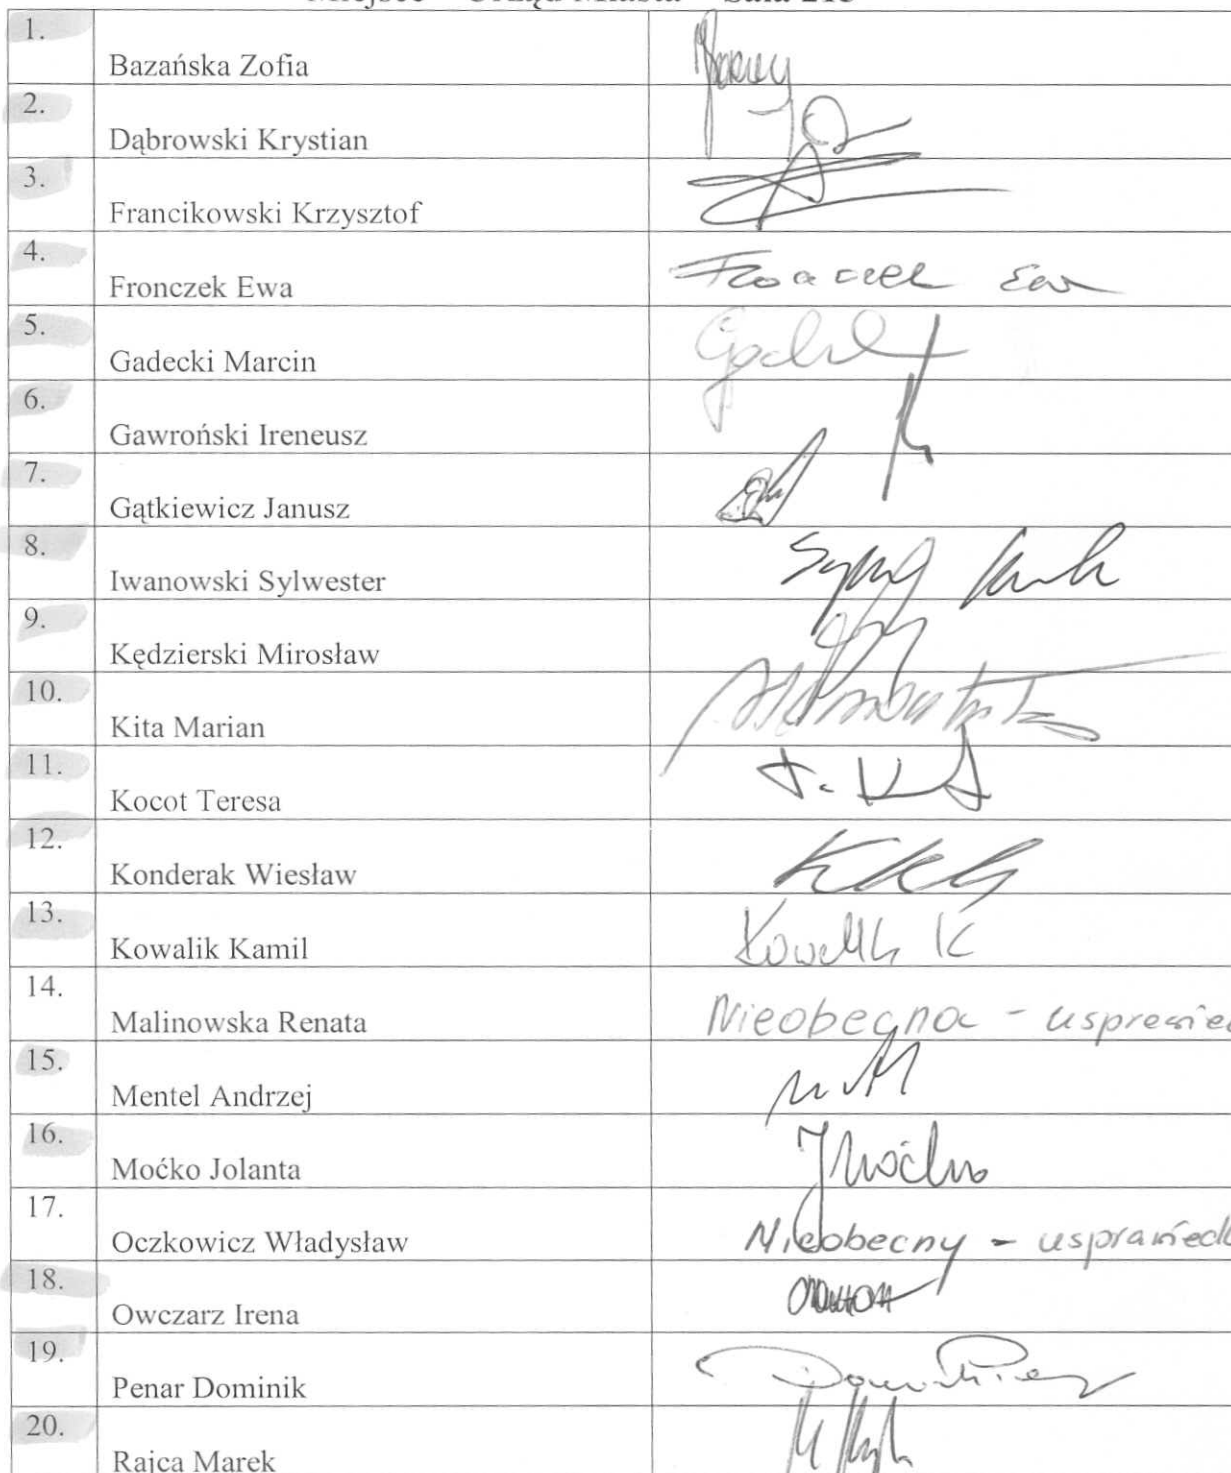 Miejsce – Urząd Miasta – Sala 213
1.
Bazańska Zofia
2.
Dąbrowski Krystian
3.
Francikowski Krzysztof
4.
Fronczek Ewa Fronczek Ewa
5.
Gadecki Marcin
6.
Gawroński Ireneusz
7.
Gątkiewicz Janusz
8.
Iwanowski Sylwester
9.
Kędzierski Mirosław
10.
Kita Marian
11.
Kocot Teresa
12.
Konderak Wiesław
13.
Kowalik Kamil Kowalik K
14.
Malinowska Renata Nieobecna - usprawied
15.
Mentel Andrzej
16.
Moćko Jolanta JMoćko
17.
Oczkowicz Władysław Nieobecny - usprawiedl
18.
Owczarz Irena
19.
Penar Dominik
20.
Rajca Marek